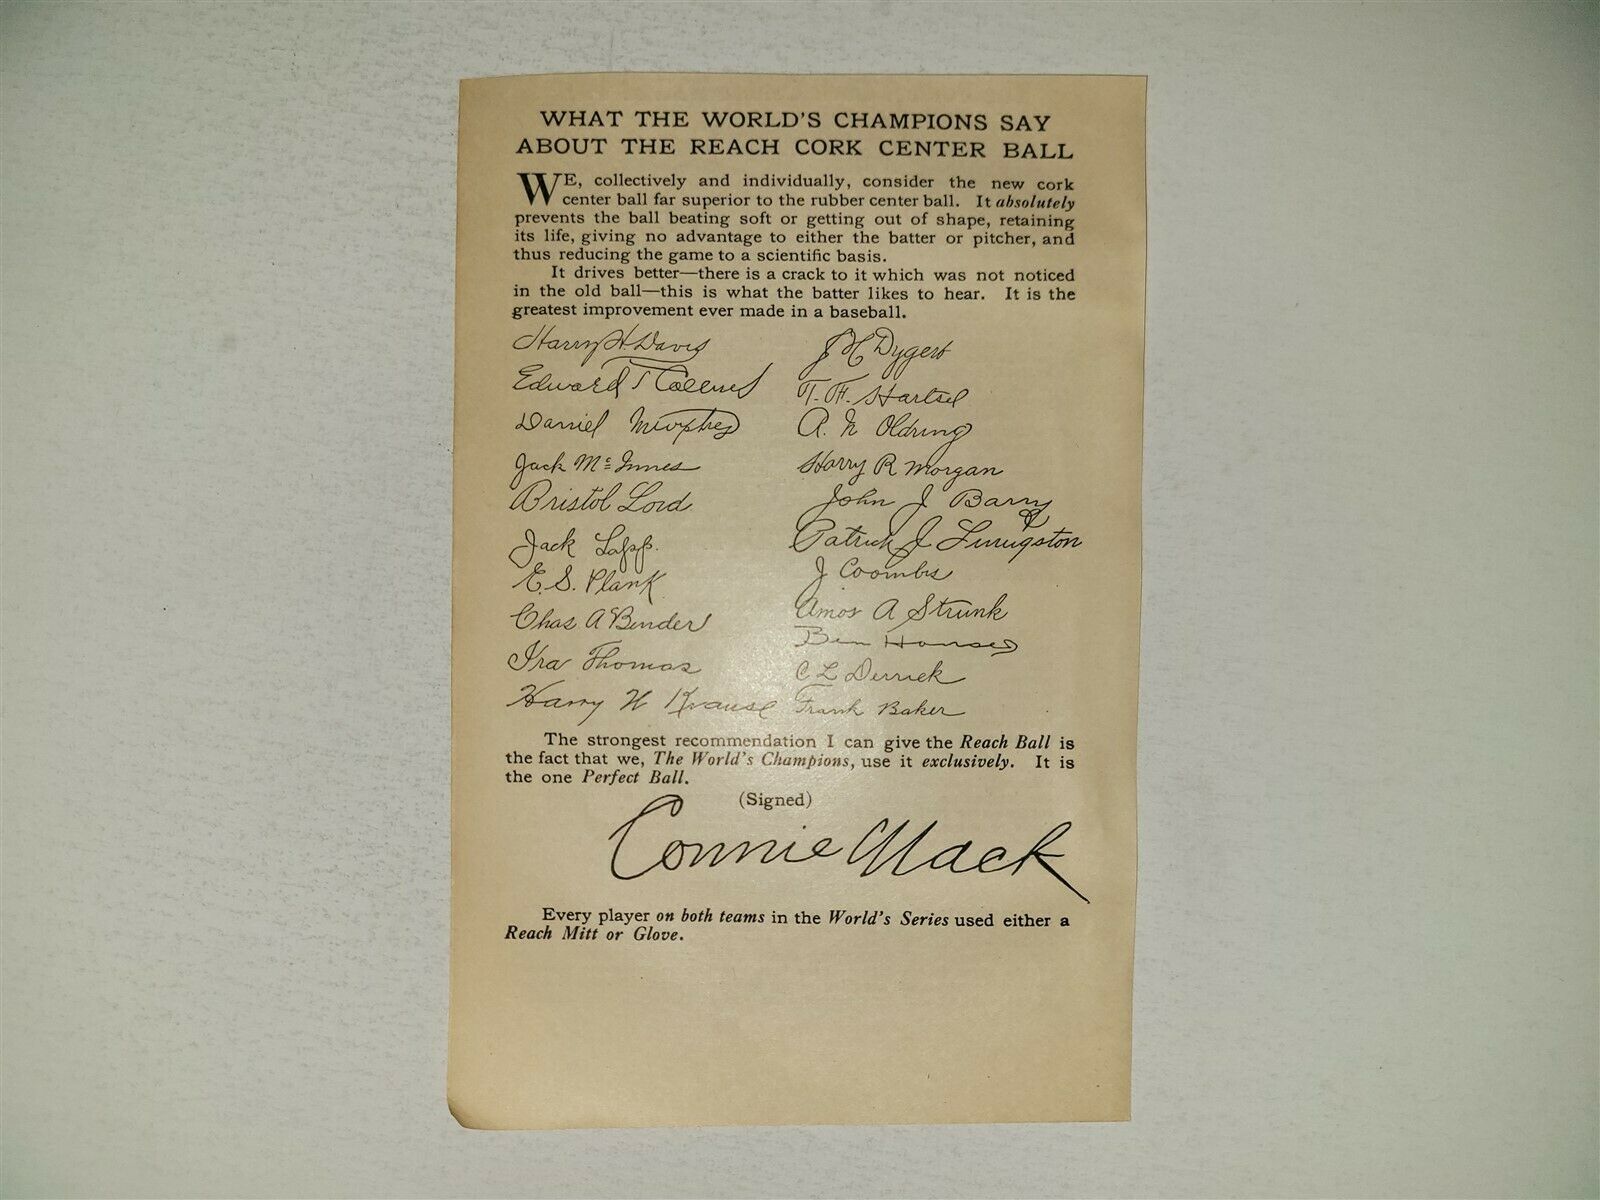 WHAT THE WORLD'S CHAMPIONS SAY
ABOUT THE REACH CORK CENTER BALL
WE, collectively and individually, consider the new cork
center ball far superior to the rubber center ball. It absolutely
prevents the ball beating soft or getting out of shape, retaining
its life, giving no advantage to either the batter or pitcher, and
thus reducing the game to a scientific basis.
It drives better—there is a crack to it which was not noticed
in the old ball—this is what the batter likes to hear. It is the
greatest improvement ever made in a baseball.
Harry H Davis
Edward T Collins
Daniel Murphy
Jack McInnes
Bristol Lord
Jack Lapp.
E. S. Plank
Chas A Bender
Ira Thomas
Harry W Krause
J H Dygert
T. F. Hartsel
R. N Oldring
Harry R Morgan
John J Barry
Patrick J Livingston
J Coombs
Amos A Strunk
Ben Houser
C L Derrick
Frank Baker
The strongest recommendation I can give the Reach Ball is
the fact that we, The World's Champions, use it exclusively. It is
the one Perfect Ball.
(Signed)
Connie Mack
Every player on both teams in the World's Series used either a
Reach Mitt or Glove.